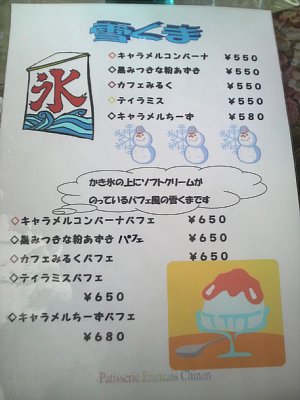 雪くま
氷
◇キャラメルコンパーナ ￥550
◇黒みつきな粉あずき ￥550
◇カフェみるく ￥550
◇ティラミス ￥550
◇キャラメルちーず ￥580
かき氷の上にソフトクリームが
のっているパフェ風の雪くまです
◇キャラメルコンパーナパフェ ￥650
◇黒みつきな粉あずき パフェ ￥650
◇カフェみるくパフェ ￥650
◇ティラミスパフェ
￥650
◇キャラメルちーずパフェ
￥680
Patisserie Francais Chinon